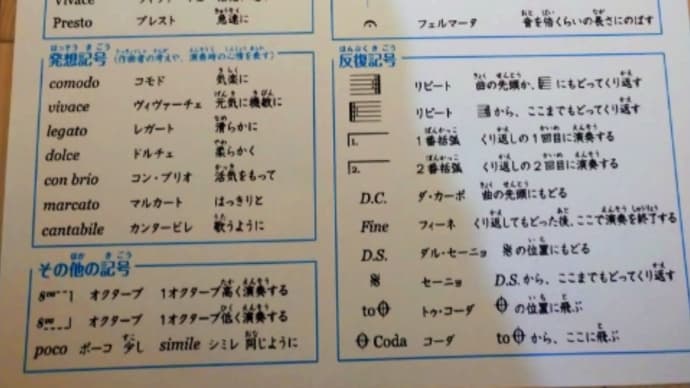 Presto プレスト 急速に
フェルマータ 音を倍くらいの長さにのばす
発想記号 (作曲者の考えや、演奏時の心情を表す)
comodo コモド 気楽に
vivace ヴィヴァーチェ 元気に機敏に
legato レガート 滑らかに
dolce ドルチェ 柔らかく
con brio コン・ブリオ 活気をもって
marcato マルカート はっきりと
cantabile カンタービレ 歌うように
その他の記号
8va オクターブ 1オクターブ高く演奏する
8va オクターブ 1オクターブ低く演奏する
poco ポーコ 少し simile シミレ 同じように
反復記号
リピート 曲の先頭か、 にもどってくり返す
リピート から、ここまでもどってくり返す
1. 1番括弧 くり返しの1回目に演奏する
2. 2番括弧 くり返しの2回目に演奏する
D.C. ダ・カーポ 曲の先頭にもどる
Fine フィーネ くり返してもどった後、ここで演奏を終了する
D.S. ダル・セーニョ 𝄋の位置にもどる
𝄋 セーニョ D.S.から、ここまでもどってくり返す
to𝄌 トゥ・コーダ 𝄌の位置に飛ぶ
𝄌Coda コーダ to𝄌から、ここに飛ぶ